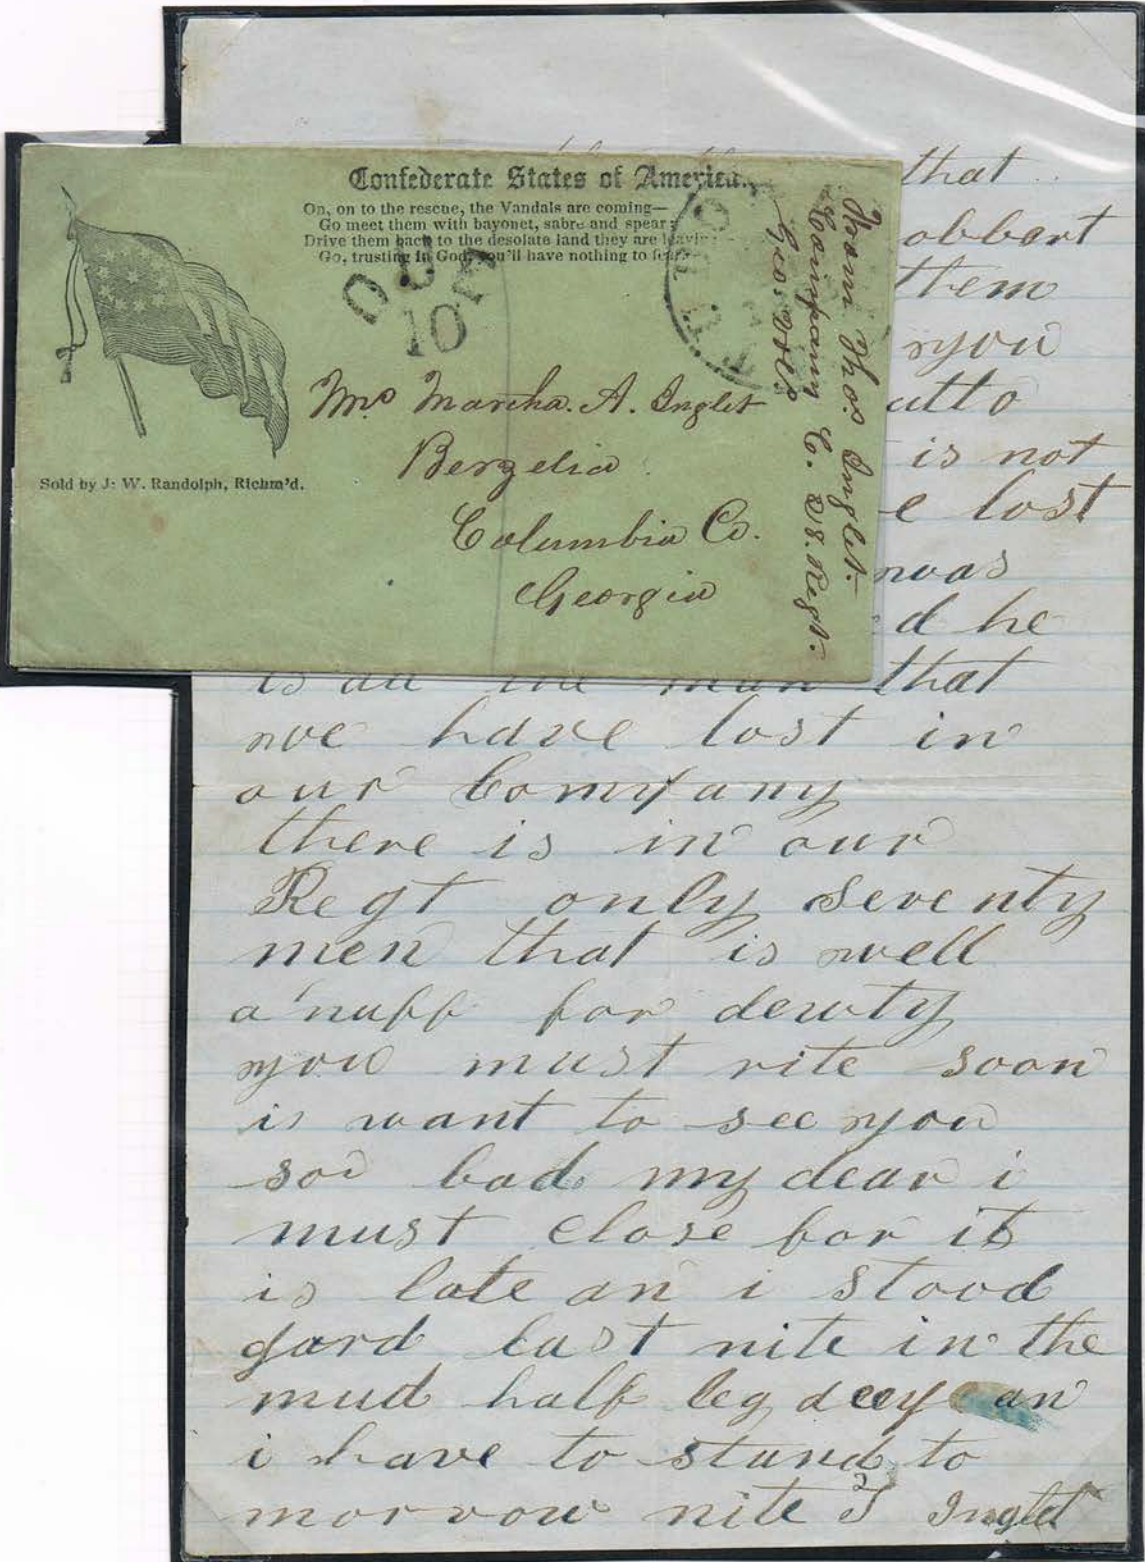 Confederate States of America.
On, on to the rescue, the Vandals are coming—
Go meet them with bayonet, sabre and spear;
Drive them back to the desolate land they are leaving
Go, trusting in God, you'll have nothing to fear
DUE
10
Mrs Martha. A. Inglet
Berzelia
Columbia Co.
Georgia
Sold by J. W. Randolph, Richm'd.
From Thos Inglet.
Company C. 28. Regt.
Geo. Vols
that
obbert
them
you
atto
is not
e lost
was
d he
is all the man that
we have lost in
our Company
there is in our
Regt only Seventy
men that is well
a nuff for dewty
you must rite soon
i want to see you
so bad my dear i
must close for it
is late an i stood
gard last nite in the
mud half leg deep an
i have to stand to
morrow nite T Inglet